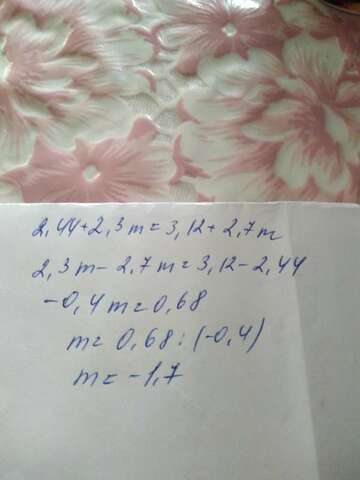 2,44+2,3m=3,12+2,7m
2,3m-2,7m=3,12-2,44
-0,4m=0,68
m=0,68:(-0,4)
m=-1,7